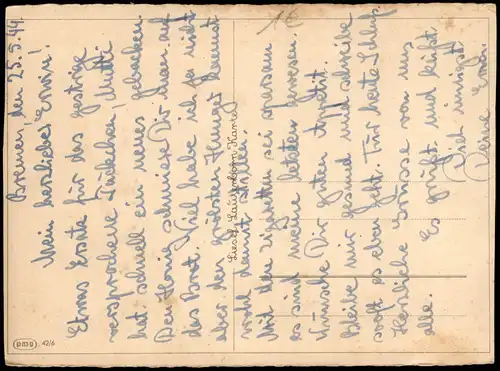 Bremen den 25.5.44.
Mein herzliebes Erwin!
Etwas Ersatz für das gestrige
versprochene Päckchen, Mutti
hat schnell ein neues gebacken.
Den Honig schmiere Dir man auf
das Brot. Viel habe ich ja nicht
aber den größten Hunger kannst
wohl damit stillen.
Mit den Zigaretten sei sparsam
es sind meine letzten gewesen.
Wünsche Dir guten Appetit.
Bleibe mir gesund und schreibe
sooft es eben geht. Für heute Schluß.
Herzliche Grüsse von uns
alle. Es grüßt und küßt
Dich innigst
Deine Erna.
Liesel Lauterborn Karte
42/6